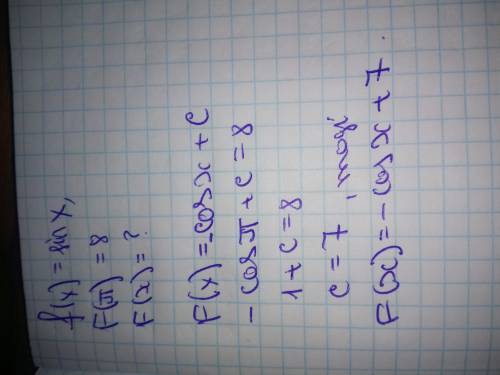 f(x) = sin x,
F(π) = 8
F(x) = ?
F(x) = -cos x + C
- cos π + c = 8
1 + c = 8
c = 7, тоді
F(x) = - cos x + 7.